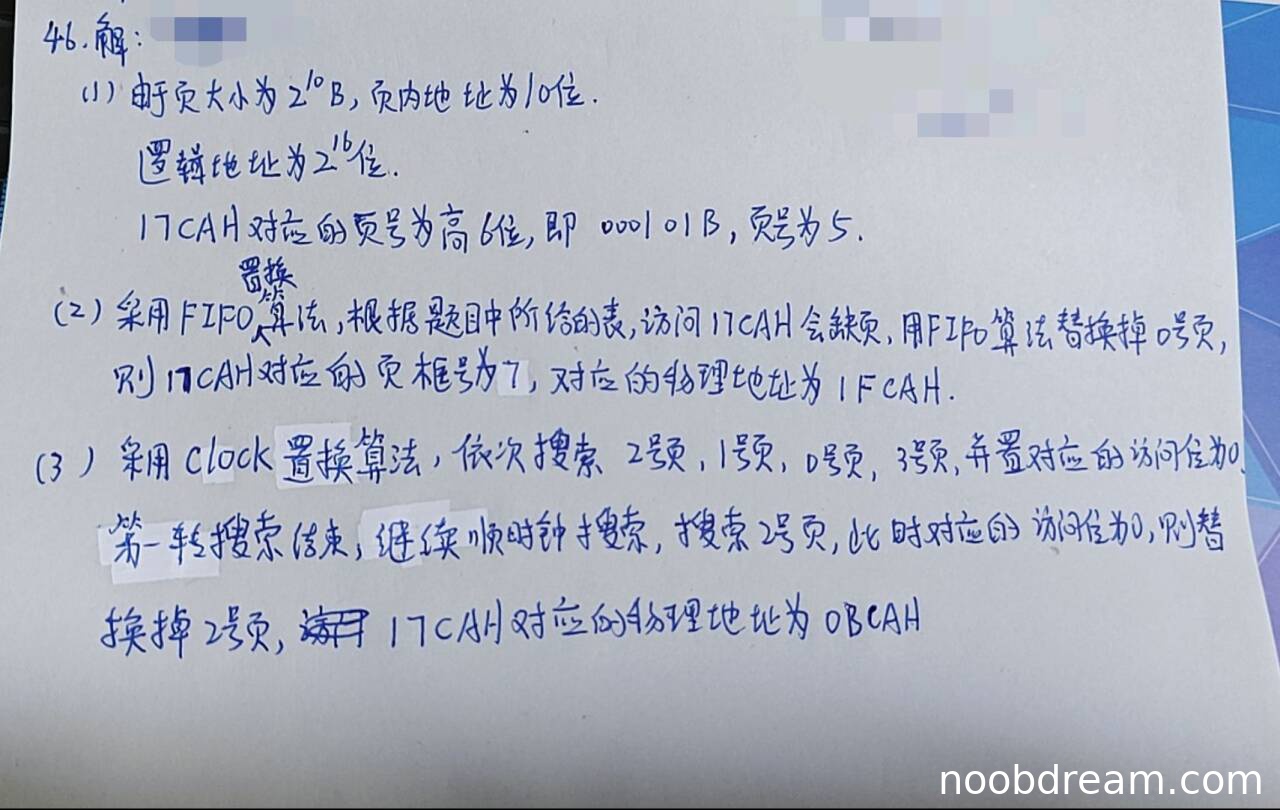 46.解:
(1) 由于页大小为2¹⁰B,页内地址为10位.
逻辑地址为2¹⁶位.
17CAH对应的页号为高6位,即 000101B,页号为5.
(2) 采用FIFO置换算法,根据题目中所给的表,访问17CAH会缺页,用FIFO算法替换掉0号页,
则17CAH对应的页框号为7,对应的物理地址为1FCAH.
(3) 采用Clock置换算法,依次搜索 2号页,1号页,0号页,3号页,并置对应的访问位为0.
第一轮搜索结束,继续顺时钟搜索,搜索2号页,此时对应的访问位为0,则替
换掉2号页, 17CAH对应的物理地址为0BCAH
noobdream.com